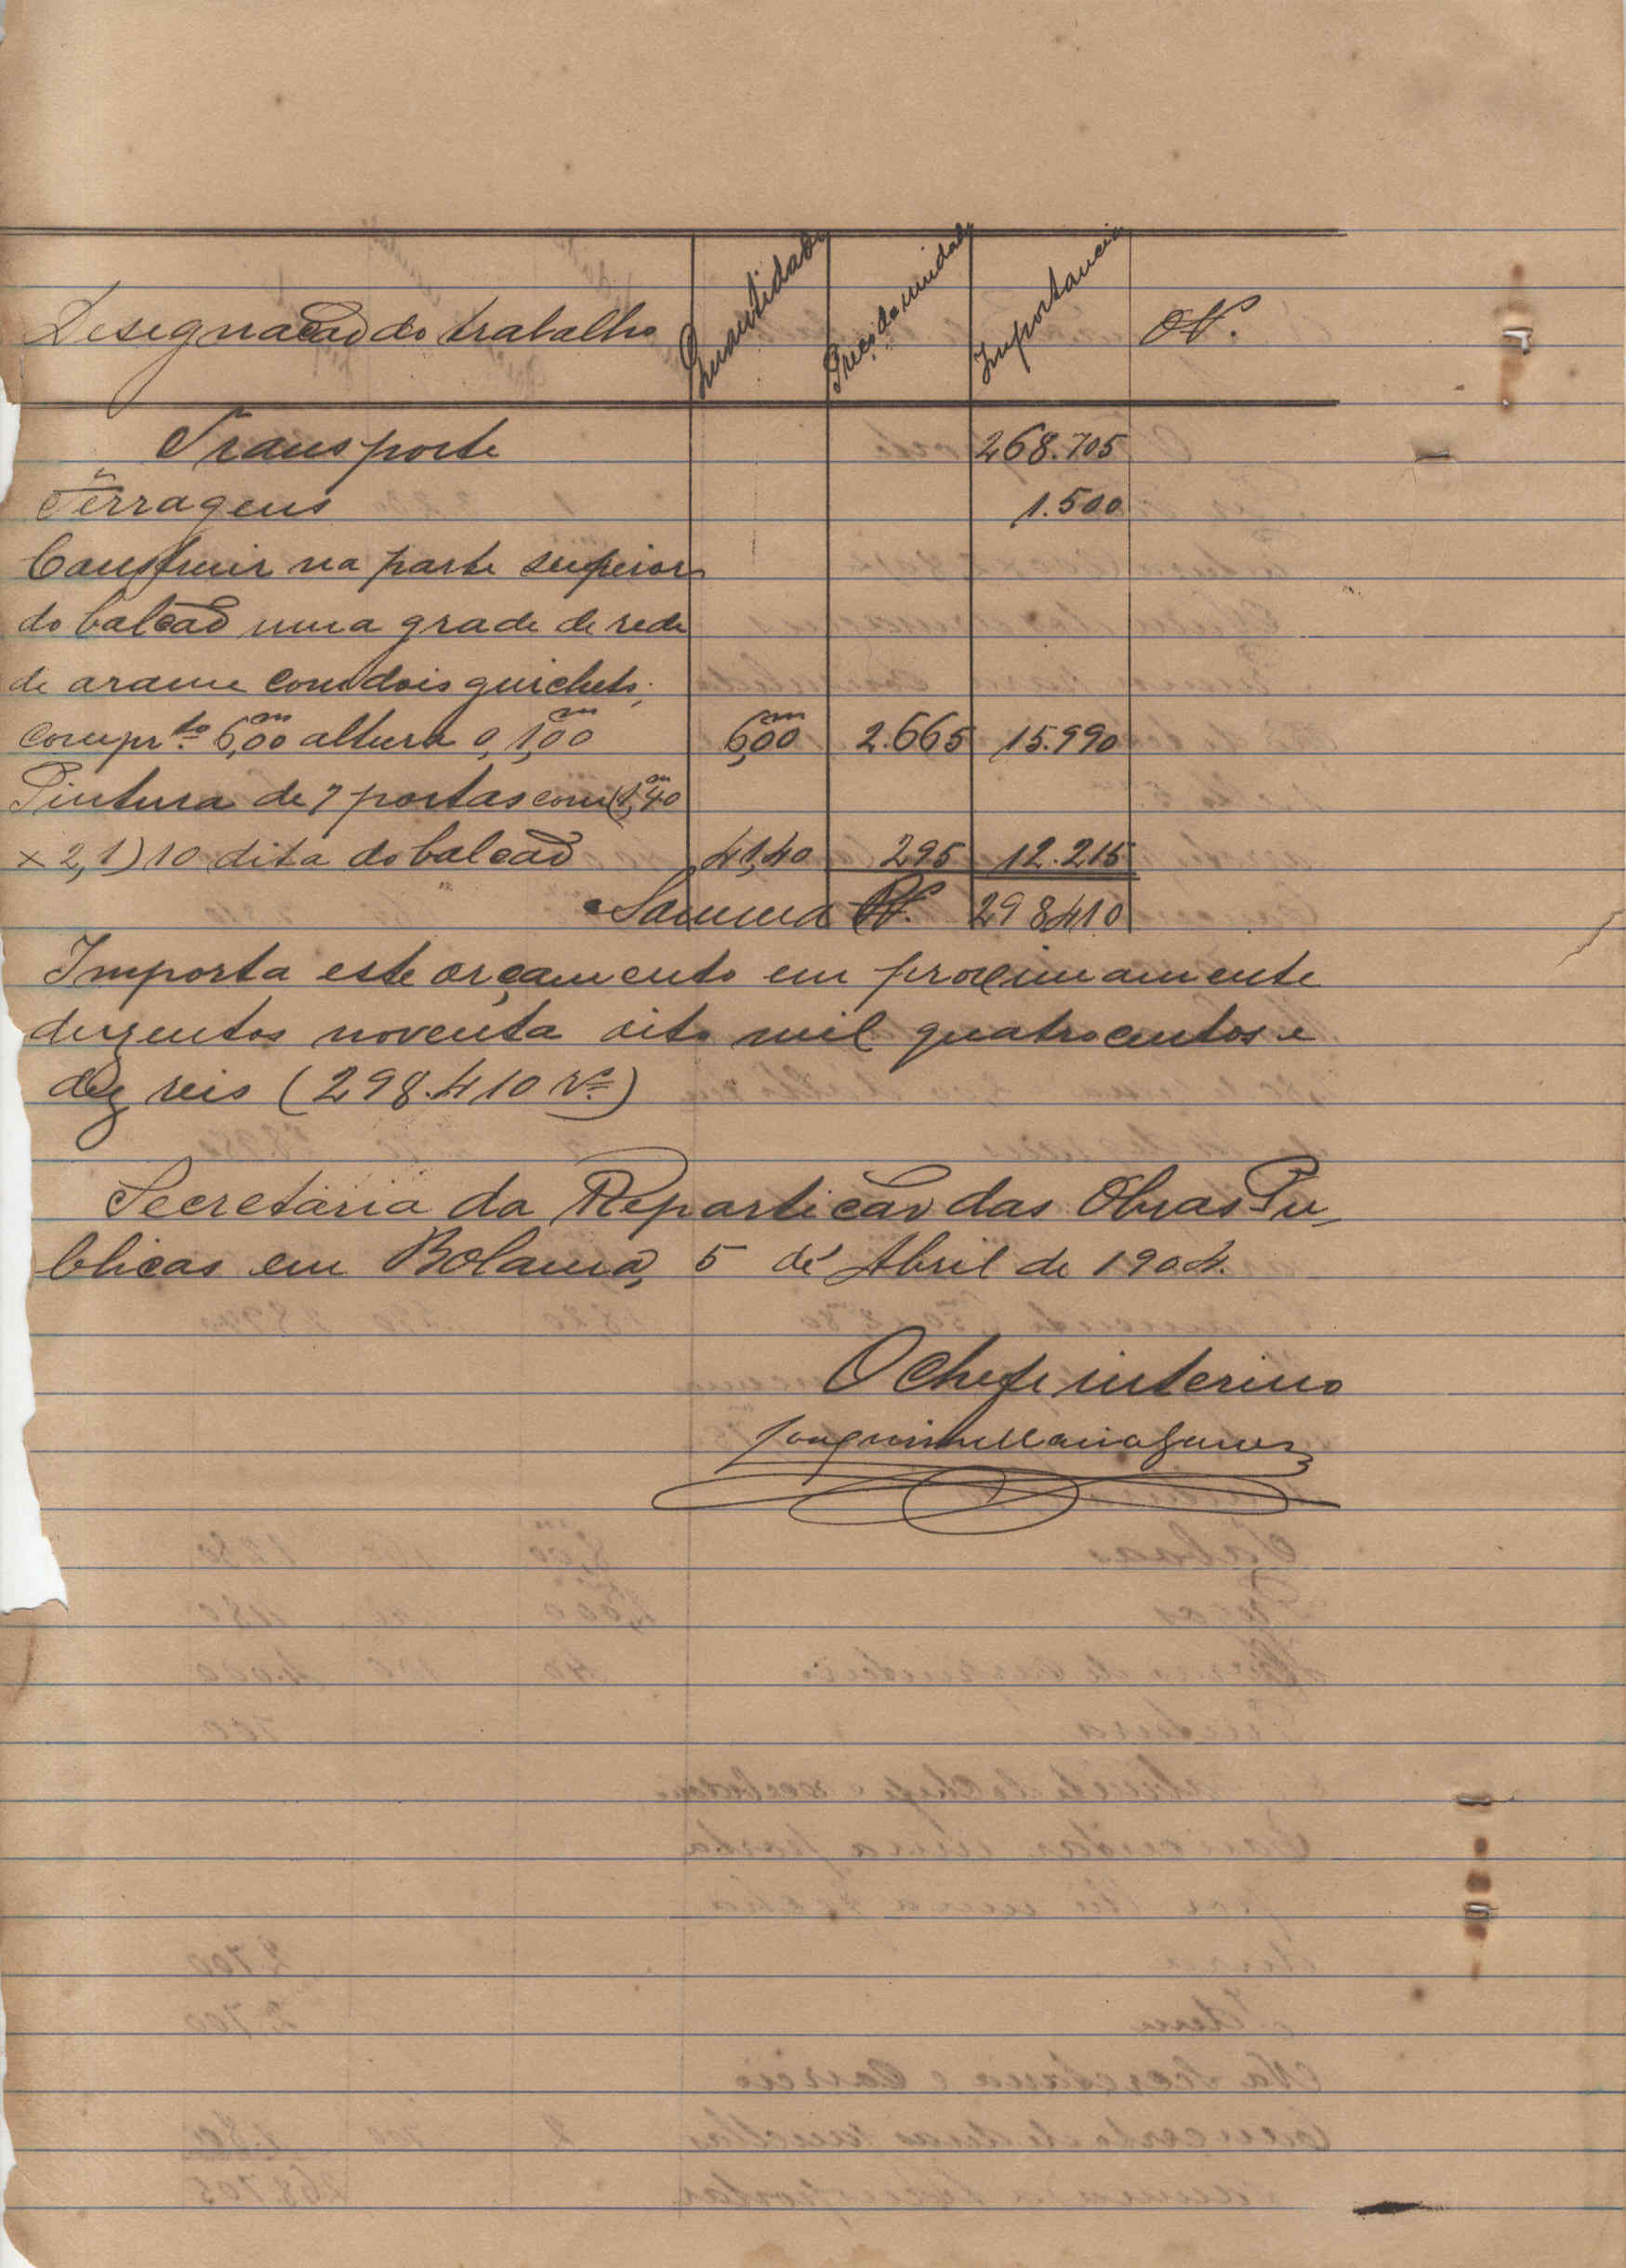 Designação do trabalho Quantidade Preço da unidade Importancia
Transporte 268.705
Ferragens 1.500
Construir na parte superior
do balcão uma grade de rede
de arame com dois guichets,
compr.to 6,m00 altura 0,1,m00 6,m00 2.665 15.990
Pintura de 7 portas com (1,m40
x 2,1) 10 dita do balcão 41,40 295 12.215
Somma 298410
Importa este orçamento em proximamente
duzentos noventa oito mil quatrocentos e
dez reis (298.410 rs)
Secretaria da Repartição das Obras Pu-
blicas em Bolama, 5 de Abril de 1904.
O Chefe interino
Joaquim Maria